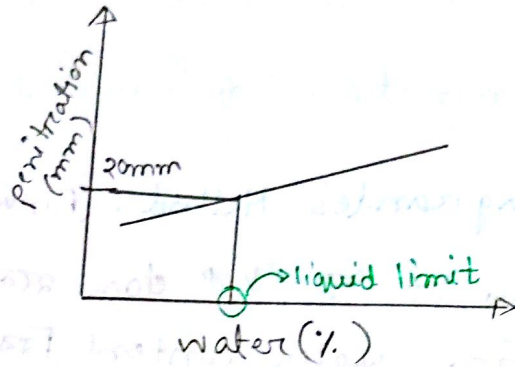 penitration
(mm)
20mm
liquid limit
water (%)